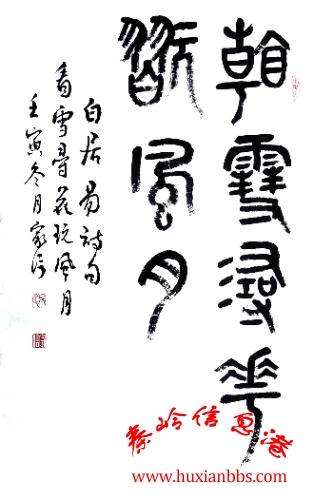 看雪尋花
翫風月
白居易詩句
看雪尋花玩風月
壬寅冬月家
秦岭信息港
www.huxianbbs.com